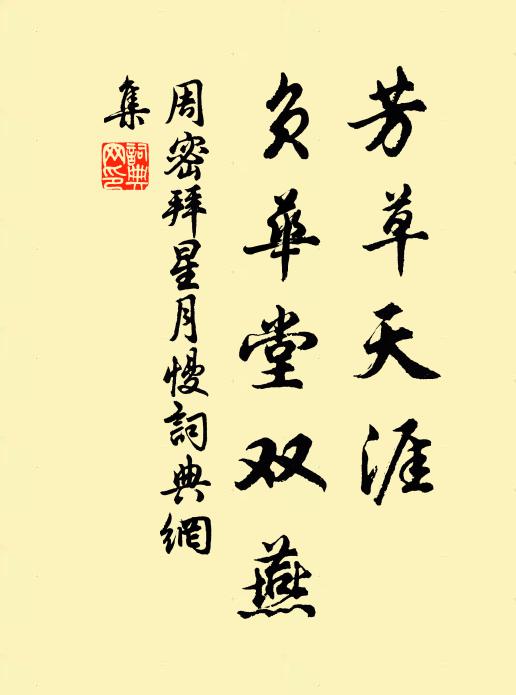 芳草天涯
负华堂双燕
周密拜星月慢詞典網
集
詞典網印